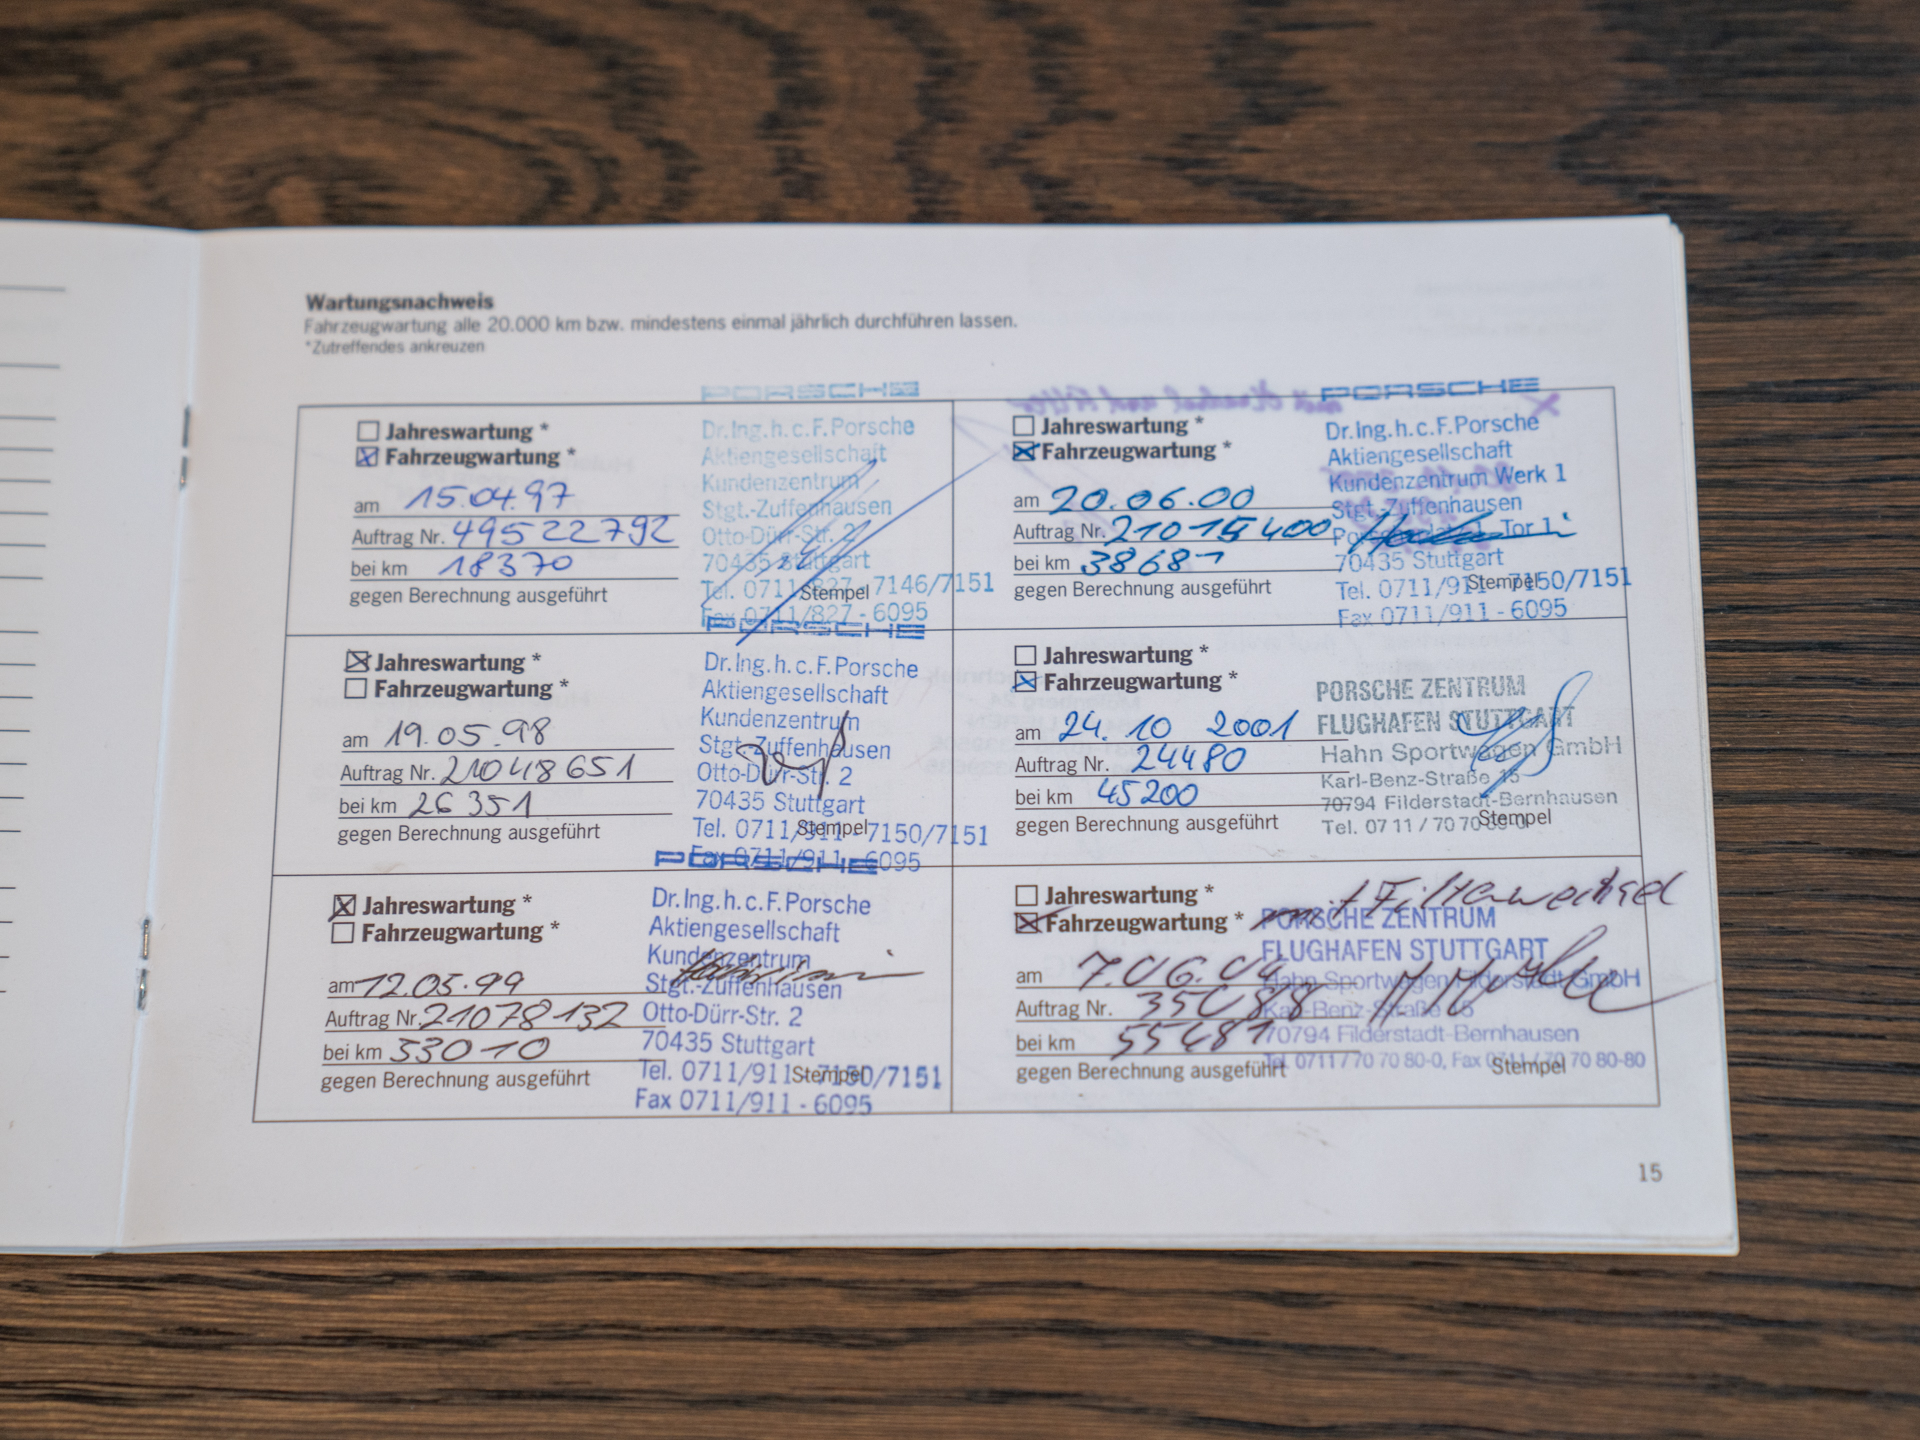 Wartungsnachweis
Fahrzeugwartung alle 20.000 km bzw. mindestens einmal jährlich durchführen lassen.
*Zutreffendes ankreuzen
PORSCHE
Jahreswartung *
Fahrzeugwartung *
am 15.04.97
Auftrag Nr. 49522792
bei km 18370
gegen Berechnung ausgeführt
Dr.Ing.h.c.F.Porsche
Aktiengesellschaft
Kundenzentrum
Stgt.-Zuffenhausen
Otto-Dürr-Str. 2
70435 Stuttgart
Tel. 0711/827 - 7146/7151
Stempel
Fax 0711/827 - 6095
PORSCHE
Jahreswartung *
Fahrzeugwartung *
am 19.05.98
Auftrag Nr. 21048651
bei km 26351
gegen Berechnung ausgeführt
Dr.Ing.h.c.F.Porsche
Aktiengesellschaft
Kundenzentrum
Stgt.-Zuffenhausen
Otto-Dürr-Str. 2
70435 Stuttgart
Tel. 0711/911 - 7150/7151
Stempel
Fax 0711/911 - 6095
PORSCHE
Jahreswartung *
Fahrzeugwartung *
am 12.05.99
Auftrag Nr. 21078132
bei km 33010
gegen Berechnung ausgeführt
Dr.Ing.h.c.F.Porsche
Aktiengesellschaft
Kundenzentrum
Stgt.-Zuffenhausen
Otto-Dürr-Str. 2
70435 Stuttgart
Tel. 0711/911 - 7150/7151
Stempel
Fax 0711/911 - 6095
PORSCHE
Jahreswartung *
Fahrzeugwartung *
am 20.06.00
Auftrag Nr. 21015400
bei km 38681
gegen Berechnung ausgeführt
Dr.Ing.h.c.F.Porsche
Aktiengesellschaft
Kundenzentrum Werk 1
Stgt.-Zuffenhausen
Tor 1
70435 Stuttgart
Tel. 0711/911 - 7150/7151
Stempel
Fax 0711/911 - 6095
Jahreswartung *
Fahrzeugwartung *
am 24.10 2001
Auftrag Nr. 24480
bei km 45200
gegen Berechnung ausgeführt
PORSCHE ZENTRUM
FLUGHAFEN STUTTGART
Hahn Sportwagen GmbH
Karl-Benz-Straße 15
70794 Filderstadt-Bernhausen
Tel. 07 11 / 70 70 80-0
Stempel
Jahreswartung *
Fahrzeugwartung *
mit Filterwechsel
am 7.06.04
Auftrag Nr. 35088
bei km 55481
gegen Berechnung ausgeführt
PORSCHE ZENTRUM
FLUGHAFEN STUTTGART
Hahn Sportwagen Filderstadt GmbH
Karl-Benz-Straße 15
70794 Filderstadt-Bernhausen
Tel. 0711/70 70 80-0, Fax 0711/70 70 80-80
Stempel
15